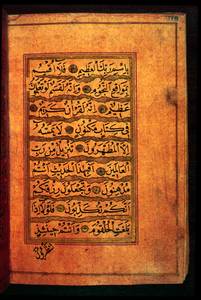 باسم ربك العظيم فلا أقسم
بمواقع النجوم وإنه لقسم لو تعلمون
عظيم إنه لقرآن كريم
في كتاب مكنون لا يمسه
إلا المطهرون تنزيل من رب
العالمين أفبهذا الحديث أنتم
مدهنون وتجعلون رزقكم
أنكم تكذبون فلولا إذا
بلغت الحلقوم وأنتم حينئذ
تنظرون